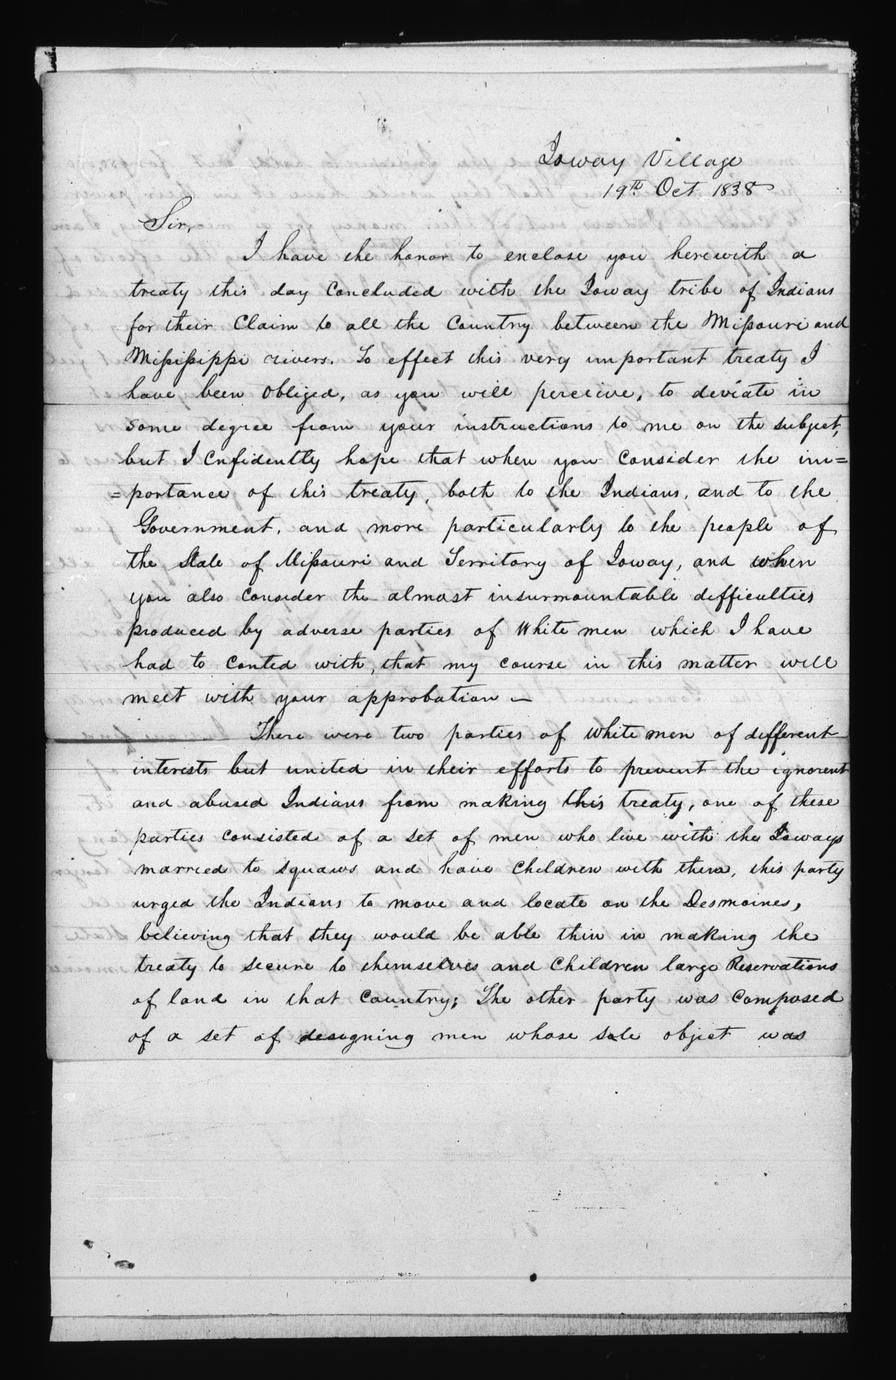 Ioway Village
19th Oct 1838
Sir,
I have the honor to enclose you herewith a
treaty this day Concluded with the Ioway tribe of Indians
for their Claim to all the Country between the Missouri and
Mississippi rivers. To effect this very important treaty I
have been Obliged, as you will percieve, to deviate in
some degree from your instructions to me on the subject,
but I Cnfidently hope that when you Consider the im=
=portance of this treaty, both to the Indians, and to the
Government, and more particularly to the people of
the State of Missouri and Territory of Ioway, and when
you also Consider the almost insurmountable difficulties
produced by adverse parties of White men which I have
had to conted with, that my course in this matter will
meet with your approbation —
There were two parties of white men of different
interests but united in their efforts to prevent the ignorent
and abused Indians from making this treaty, one of these
parties consisted of a set of men who live with the Ioways
married to squaws and have Children with them, this party
urged the Indians to move and locate on the Desmoines,
believing that they would be able thin in making the
treaty to secure to themselves and Children large Reservations
of land in that Country; The other party was Composed
of a set of designing men whose sole object was